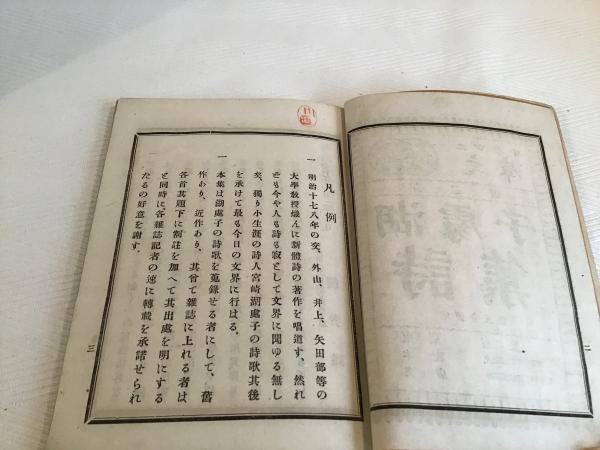 凡例
一 明治十七八年の交、外山、井上、矢田部等の
大學敎授熾んに新體詩の著作を唱道す、然れ
ども今や人も詩も寂として文界に聞ゆる無し
矣、獨り小生涯の詩人宮崎湖處子の詩歌其後
を承けて最も今日の文界に行はる。
一 本集は湖處子の詩歌を蒐錄せる者にして、舊
作あり、近作あり、其曾て雜誌に上れる者は
各首其題下に割註を加へて其出處を明にする
と同時に、各雜誌記者の速に轉載を承諾せられ
たるの好意を謝す。
三
二